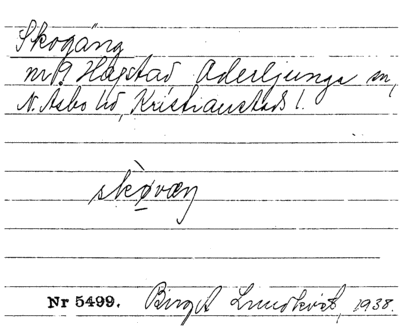 Skogäng
nr 9 Hagstad Oderljunga sn,
N. Åsbo hd, Kristianstads l.
skòvæŋ
Nr 5499. Birgit Lundkvist, 1938.